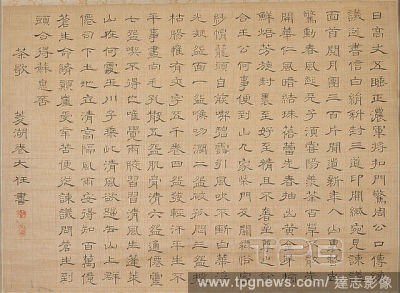 日高丈五睡正濃軍將扣門驚周公口傳諫
議送書信白絹斜封三道印開緘宛見諫議
面首閱月團三百片聞道新年入山裏蟄蟲
驚動春風起天子須嘗陽羨茶百草不敢先
開華仁風暗結珠琲蕾先春抽出黃金芽摘
鮮焙芳旋封裹至精至好且不奢至尊之餘
合王公何事便到山人家柴門反關無俗客
紗帽籠頭自煎喫碧雲引風吹不斷白華浮
光凝盌面一盌喉吻潤二盌破孤悶三盌搜
枯腸惟有文字五千卷四盌發輕汗平生不
平事盡向毛孔散五盌肌骨清六盌通僊靈
七盌喫不得也唯覺兩腋習習清風生蓬萊
山在何處玉川子乘此清風欲歸去山上群
僊司下土地位清高隔風雨安得知百萬億
蒼生命墮顛崖受辛苦便從諫議問蒼生到
頭合得蘇息否
茶歌 菱湖卷大任書
www.tpgnews.com/達志影像